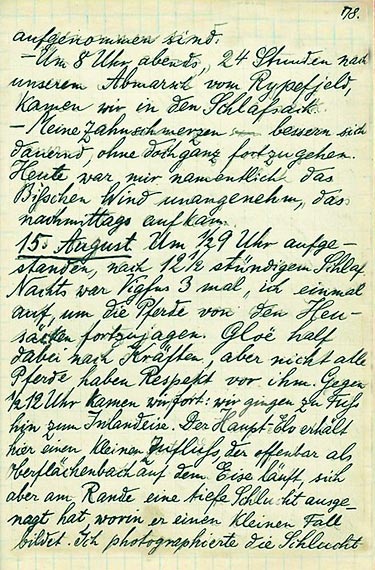 78.
aufgenommen sind.
– Um 8 Uhr abends, 24 Stunden nach
unserem Abmarsch vom Rypefjeld,
kamen wir in den Schlafsack.
– Meine Zahnschmerzen bessern sich
dauernd, ohne doch ganz fortzugehen.
Heute war mir namentlich das
Bißchen Wind unangenehm, das
nachmittags aufkam.
15. August. Um 1/29 Uhr aufge-
standen, nach 12 1/2 stündigem Schlaf
Nachts war Vigfus 3 mal, ich einmal
auf, um die Pferde von den Heu-
säcken fortzujagen. Gloë half
dabei nach Kräften, aber nicht alle
Pferde haben Respekt vor ihm. Gegen
1/2 12 Uhr kamen wir fort: wir gingen zu Fuss
hin zum Inlandeise. Der Haupt-Elv erhält
hier einen kleinen Zufluss, der offenbar als
Oberflächenbach auf dem Eise läuft, sich
aber am Rande eine tiefe Schlucht ausge-
nagt hat, worin er einen kleinen Fall
bildet. Ich photographierte die Schlucht